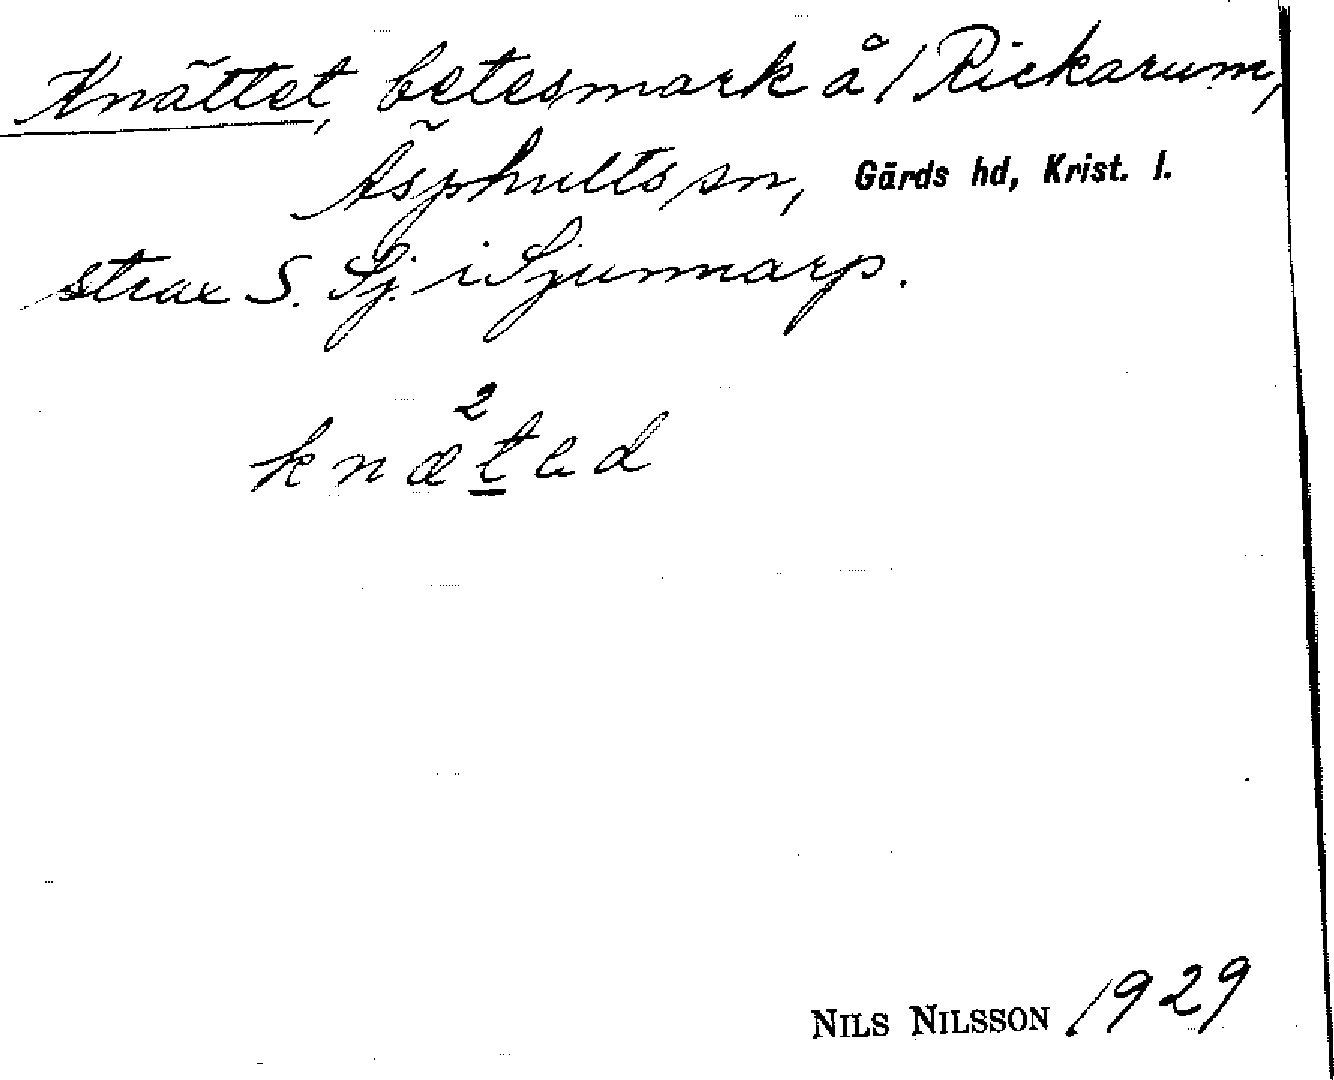 Knättet, betesmark å / Rickarum,
Äsphults sn, Gärds hd, Krist. l.
strax S. Sj. i Sjunnarp.
2
knætad
NILS NILSSON 1929